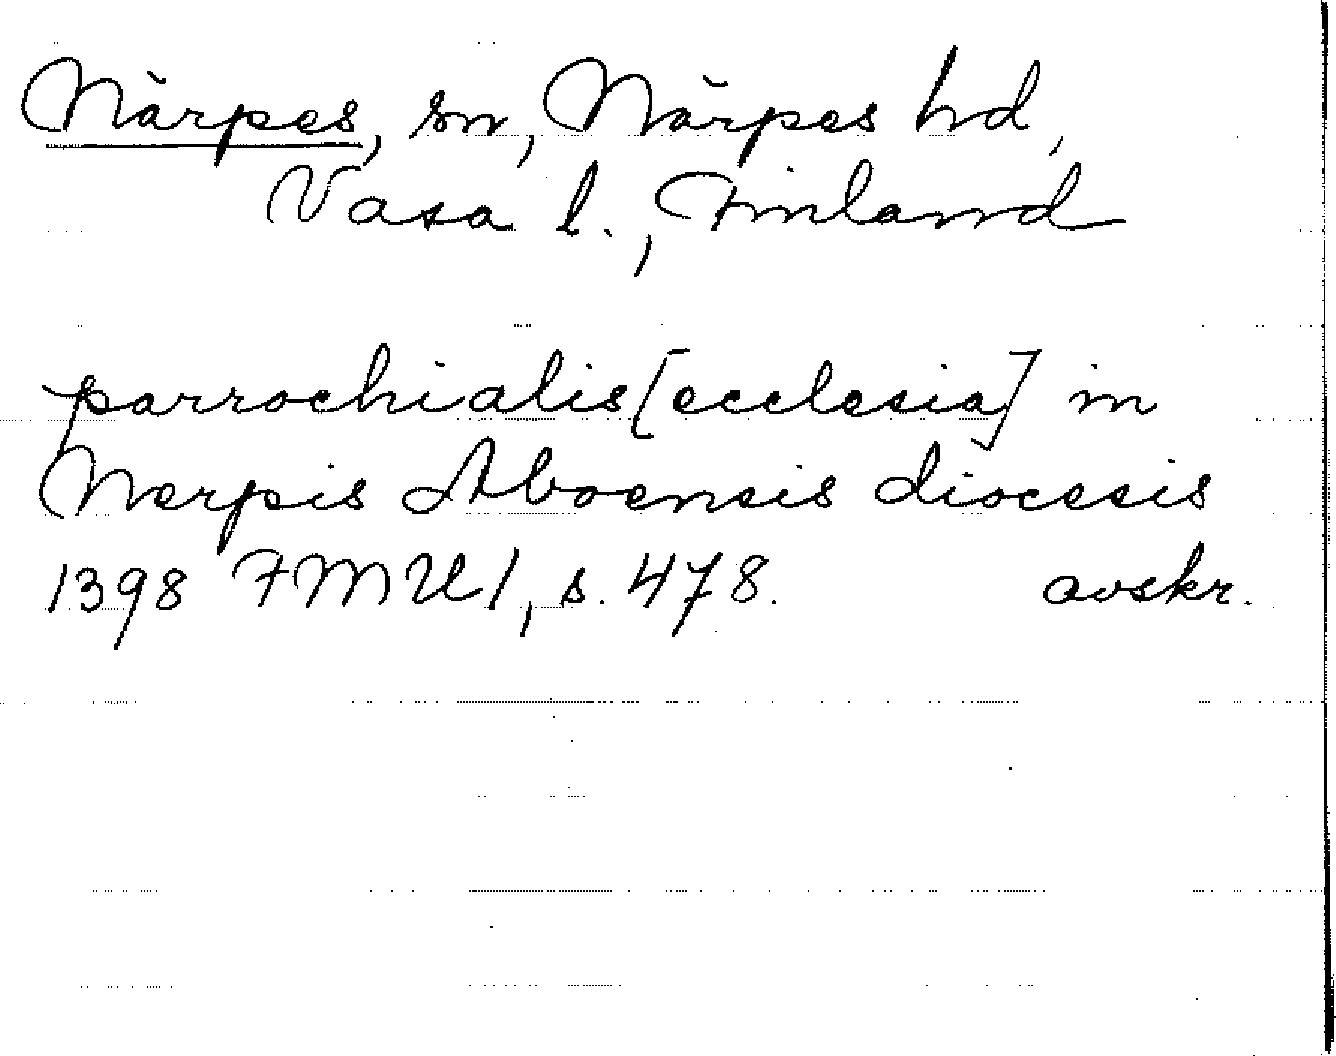 Närpes, sn, Närpes hd,
Vasa l., Finland
parrochialis [ecclesia] in
Nerpis Aboensis diocesis
1398 FMU 1, s. 478. avskr.